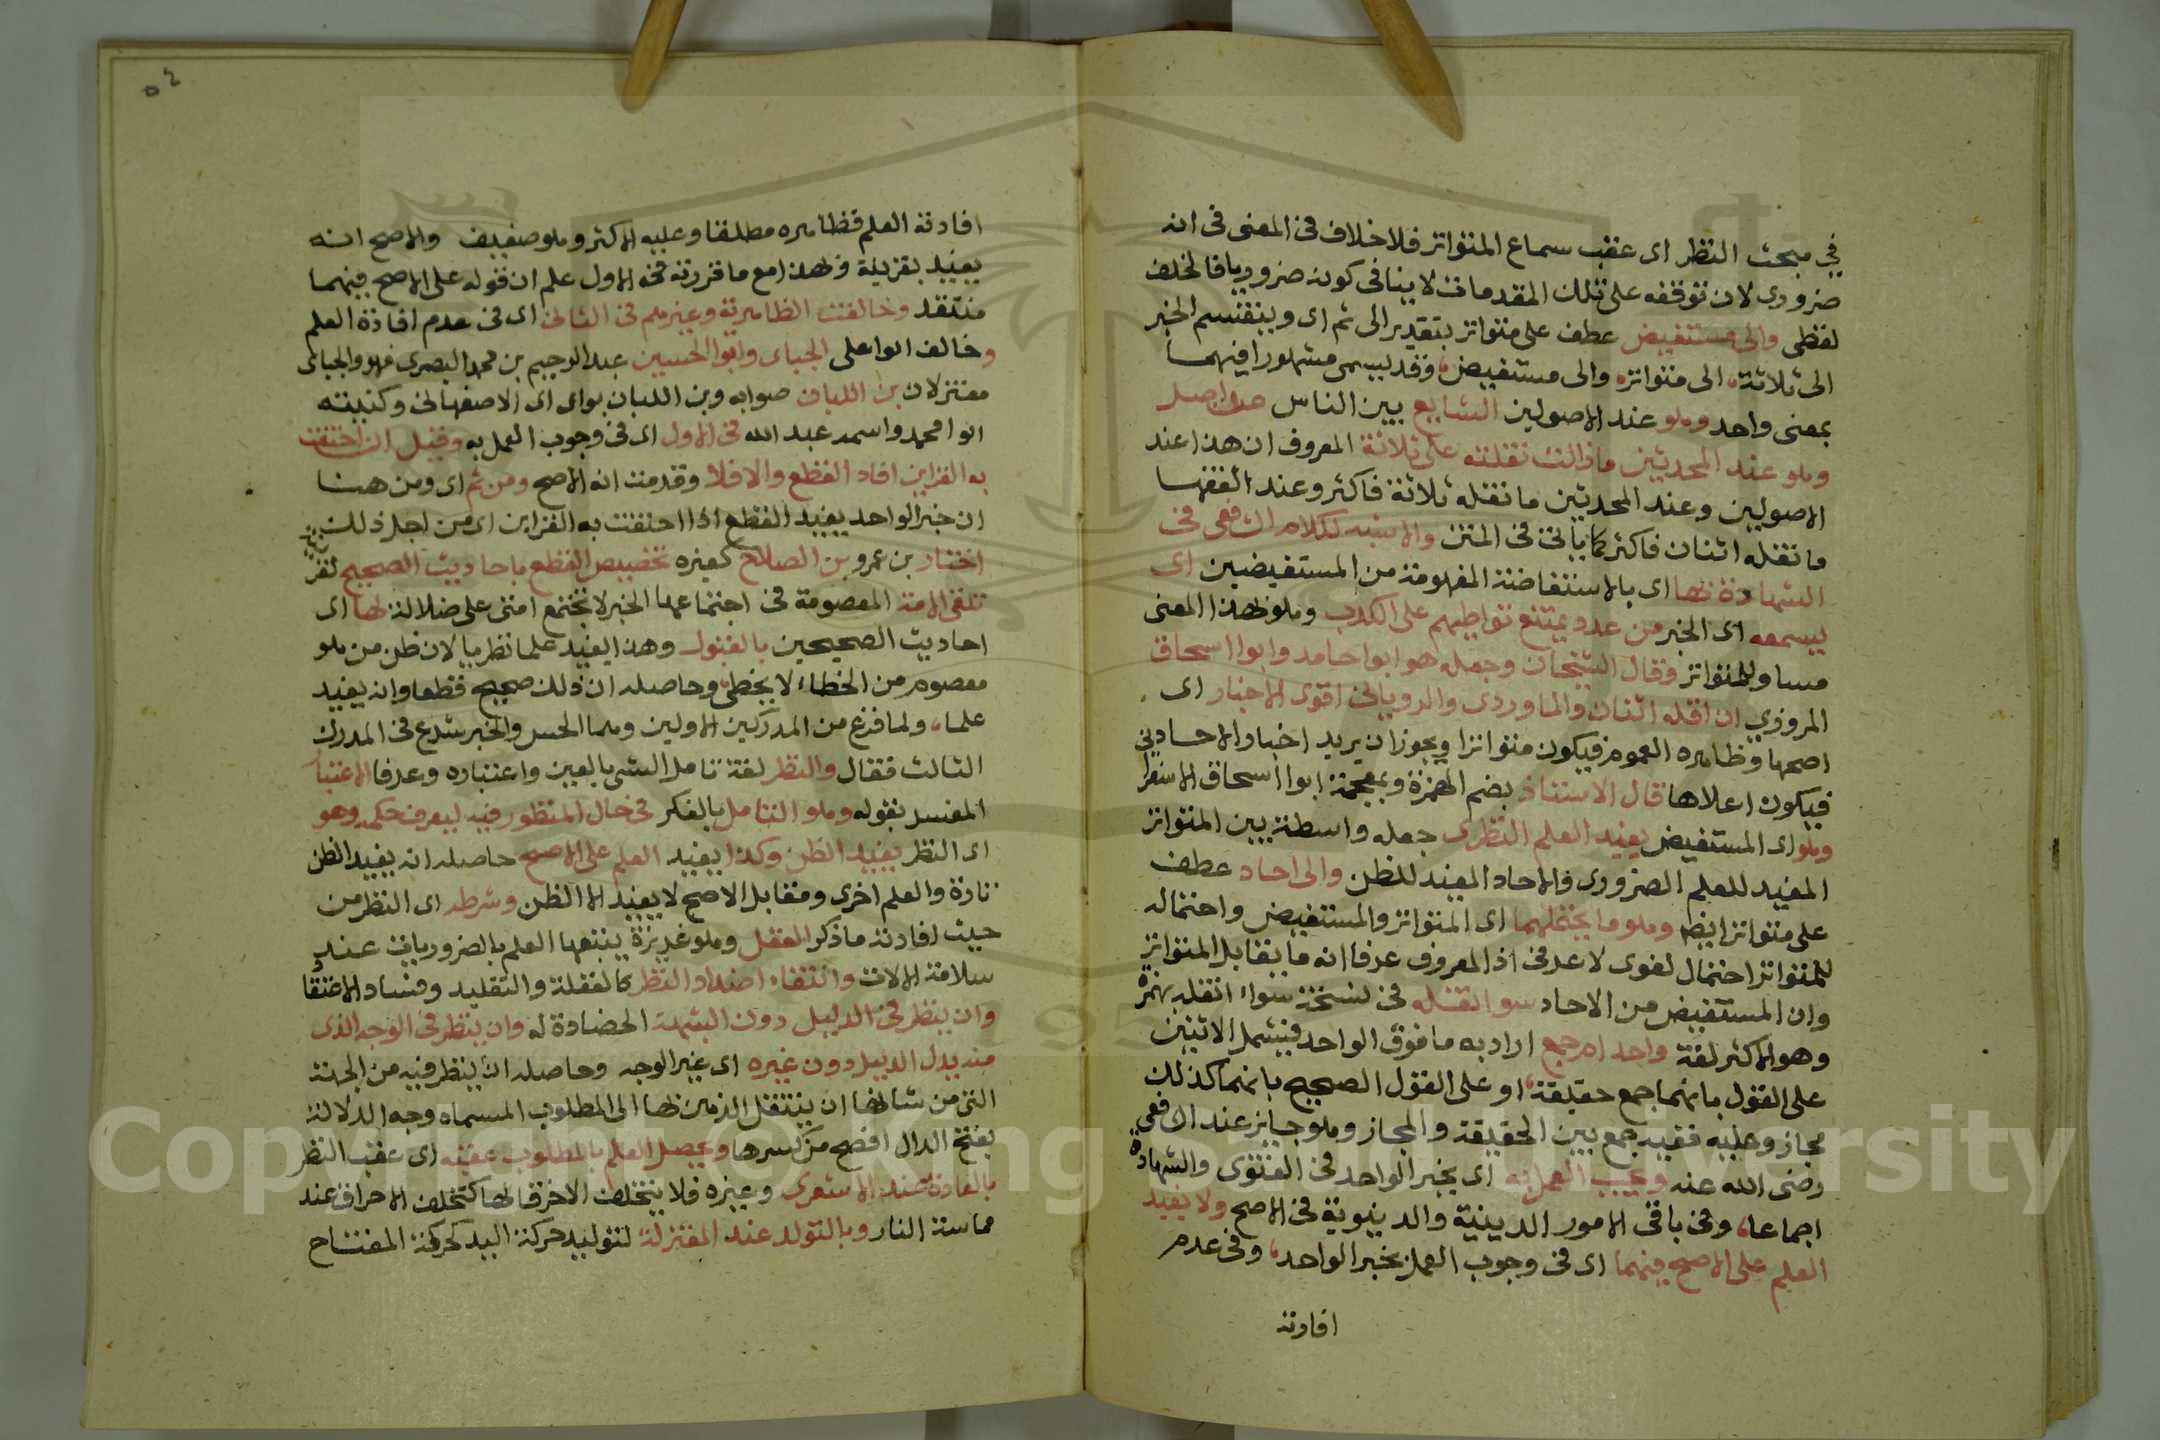 في مبحث النظر اى عقب سماع المتواتر فلا خلاف فى المعنى فى انه
ضرورى لان توقفه على تلك المقدمات لا ينافى كونه ضروريا فالخلف
لفظى والى مستفيض عطف على متواتر بتقدير الى ثم اى وينقسم الخبر
الى ثلاثة الى متواتر والى مستفيض وقد يسمى مشهورا فهما
بمعنى واحد وهو عند الاصولين الشايع بين الناس عن اصل
وهو عند المحدثين مازالت نقلته على ثلاثة المعروف ان هذا عند
الاصوليين وعند المحدثين ما نقله ثلاثة فاكثر وعند الفقها
ما نقله اثنان فاكثر كما ياتى فى المتن والاشبه لكلام الشافعى فى
الشهادة بها اى بالاستفاضة المفهومة من المستفيضين اى
يسمعه اى الخبر من عدد يمتنع تواطيهم على الكذب وهو بهذا المعنى
مساو للمتواتر وقال الشيخان وجعله هو ابوا حامد وابوا اسحاق
المروزي ان اقله اثنان والماوردى والرويانى اقوى الاخبار اى
اصحها وظاهره العموم فيكون متواترا ويجوز ان يريد اخبار الاحاديث
فيكون اعلاها قال الاستناذ بضم الهمزة وبمعجمة ابوا اسحاق الاسفرا
وهو اى المستفيض يفيد العلم النظرى جعله واسطة بين المتواتر
المفيد للعلم الضرورى والاحاد المفيد للظن والى احاد عطف
على متواتر ايضا وهو ما يحتملهما اى المتواتر والمستفيض واحتماله
للمتواتر احتمال لغوى لا عرفى اذ المعروف عرفا انه ما يقابل المتواتر
وان المستفيض من الاحاد سوا نقله فى نسخة سواء انقله بهمزة
وهو الاكثر لغة واحد ام جمع اراد به ما فوق الواحد فيشمل الاثنين
على القول بانهما جمع حقيقة او على القول الصحيح بانهما كذلك
مجاز وعليه ففيه جمع بين الحقيقة والمجاز وهو جايز عند الشافعى
رضى الله عنه ويجب العمل به اى بخبر الواحد فى الفتوى والشهادة
اجماعا وفى باقى الامور الدينية والدينوية فى الاصح ولا يفيد
العلم على الاصح فيهما اى فى وجوب العمل بخبر الواحد وفى عدم
افادته
٥٤
افادته العلم فظاهره مطلقا وعليه الاكثر وهو ضعيف والاصح انه
يفيد بقرينة فهذا مع ما قررته فى الاول علم ان قوله على الاصح فيهما
منتقد وخالفت الظاهرية وغيرهم فى الثانى اى فى عدم افادة العلم
وخالف ابوا على الجباى وابوا الحسين عبد الرحيم بن محمد البصرى فهو والجباى
معتزلان بن اللبان صوابه وبن اللبان بواى اى الاصفهانى وكنيته
ابوا محمد واسمه عبد الله فى الاول اى فى وجوب العمل به وقيل ان احتفت
به القراين افاد القطع والا فلا وقدمت انه الاصح ومن ثم اى ومن هنا
ان خبر الواحد يفيد القطع اذا احتفت به القراين اى من اجل ذلك
اختار بن عمرو بن الصلاح كغيره تخصيص القطع باحاديث الصحيح لقر
تلقى الامة المعصومة فى اجتماعها الخبر لا تجتمع امتى على ضلالة لها اى
احاديث الصحيحين بالقبول وهذا يفيد علما نظريا لان ظن من هو
معصوم من الخطاء لا يخطى وحاصله ان ذلك صحيح قطعا وانه يفيد
علما ولما فرغ من المدركين الاولين وهما الحس والخبر شرع فى المدرك
الثالث فقال والنظر لغة تامل الشى بالعين واعتباره وعرفا الاعتبا
المفسر بقوله وهو التامل بالفكر فى حال المنظور فيه ليعرف حكمه وهو
اى النظر يفيد الظن وكذا يفيد العلم على الاصح حاصله انه يفيد الظن
تارة والعلم اخرى ومقابل الاصح لا يفيد الا الظن وشرطه اى النظر من
حيث افادته ما ذكر العقل وهو غريزة يتبعها العلم بالضروريات عند
سلامة الالات وانتفاء اضداد النظر كالغفلة والتقليد وفساد الاعتقا
وان ينظر فى الدليل دون الشبهة المضادة له وان ينظر فى الوجه الذى
منه يدل الدليل دون غيره اى غير الوجه وحاصله ان ينظر فيه من الجهة
التى من شانها ان ينتقل الذهن بها الى المطلوب المسماه وجه الدلالة
بفتح الدال افصح من كسرها ويحصل العلم بالمطلوب عقبه اى عقب النظر
بالعادة عند الاشعرى وغيره فلا يتخلف الا خرقا لها كتخلف الاحراق عند
مماسة النار وبالتولد عند المعتزلة لتوليد حركة اليد كحركة المفتاح
Copyright © King Saud University